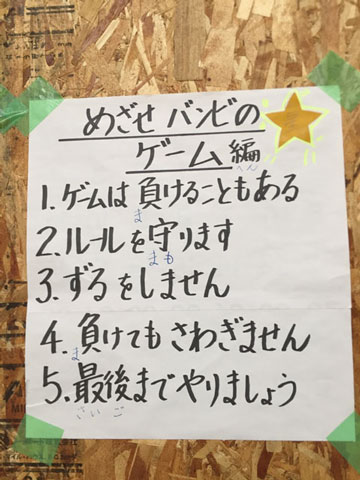 めざせ バンビの
ゲーム編
へん
1.ゲームは負けることもある
ま
2.ルールを守ります
まも
3.ずるをしません
4.負けてもさわぎません
ま
5.最後までやりましょう
さいご